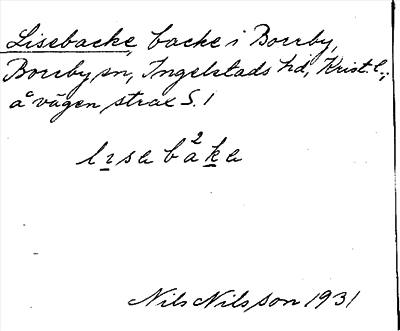 Lisebacke, backe i Borrby,
Borrby sn, Ingelstads hd, Krist. l.,
å vägen strax S. 1
lıseba²ke
Nils Nilsson 1931